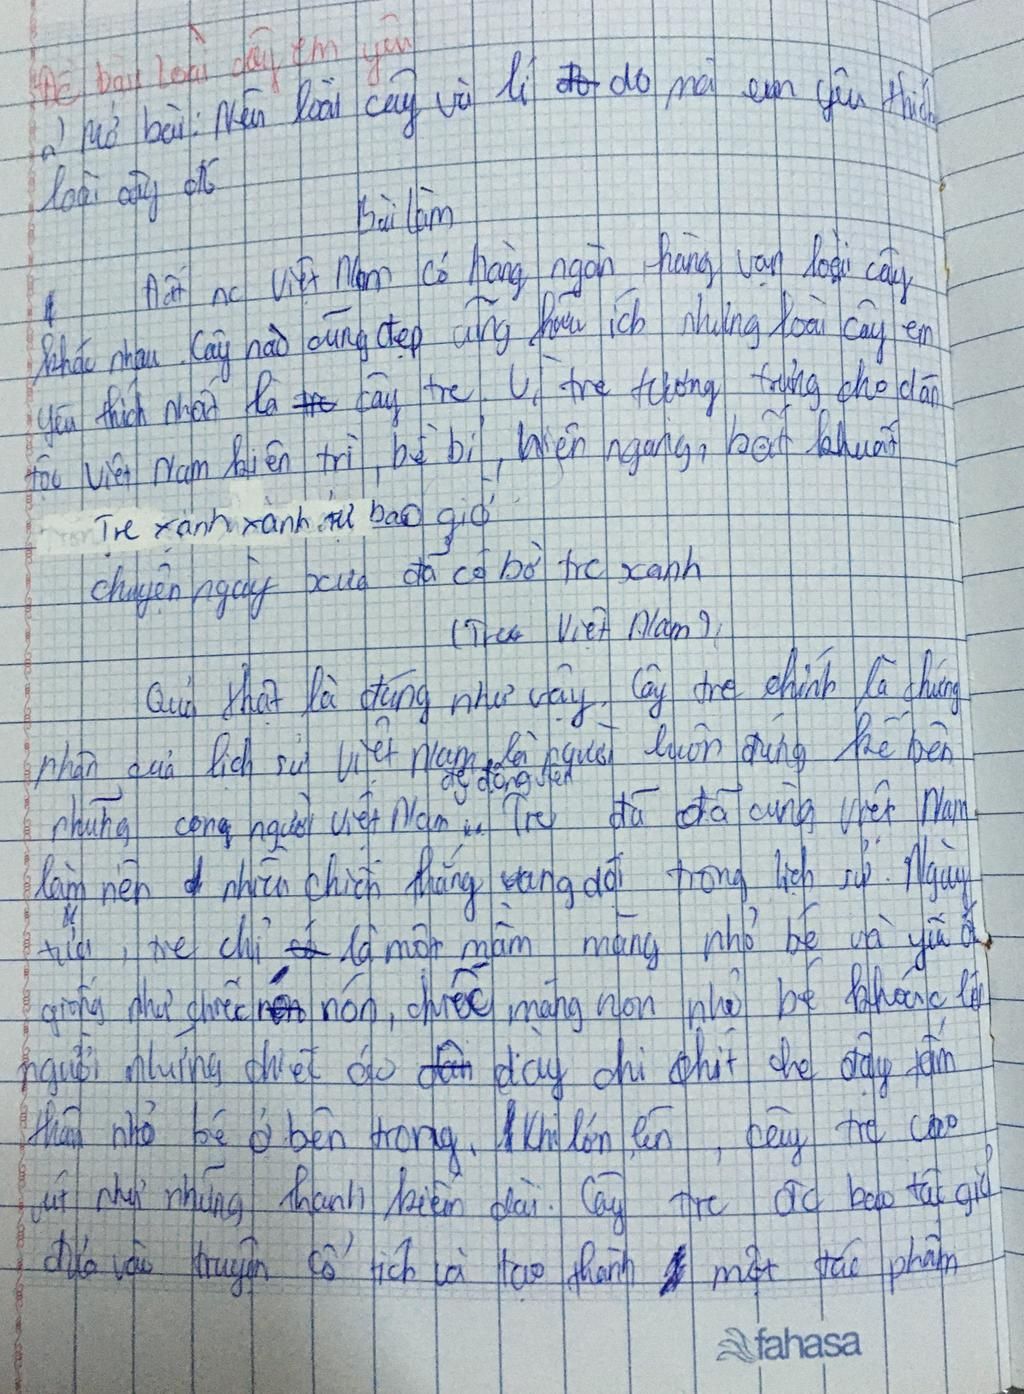 Đề bài: Loài cây em yêu
a) Mở bài: Nêu loài cây và lí do mà em yêu thích
loài cây đó
Bài làm
Đất nc Việt Nam có hàng ngàn, hàng vạn loài cây
khác nhau. Cây nào cũng đẹp cũng hữu ích nhưng loài cây em
yêu thích nhất là cây tre. Vì tre tương trưng cho dân
tộc Việt Nam kiên trì, bề bỉ, hiên ngang, bất khuất
Tre xanh xanh tự bao giờ
chuyện ngày xưa đã có bờ tre xanh
(Tre Việt Nam)
Quả thật là đúng như vậy. Cây tre chính là chứng
nhân của lịch sử Việt Nam, là người luôn đứng kề bên
để động viên
những cong người Việt Nam... Tre đã đã cùng Việt Nam
làm nên nhiều chiến thắng vang dội trong lịch sử. Ngày
, tre chỉ là một mầm măng nhỏ bé và yếu ớt
giống như chiếc nón, chiếc măng non nhỏ bé khoác lên
người những chiết áo dày chi chít che đậy tấm
thân nhỏ bé ở bên trong. Khi lớn lên, cây tre cao
út như những thanh kiếm dài. Cây tre đc bao tác giả
đưa vào truyện cổ tích và tạo thành một tác phẩm
fahasa